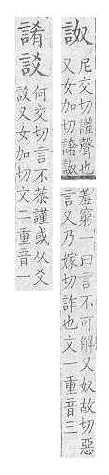 詉
尼交切讙聲也
又女加切譇詉
羞窮一曰言不可解又奴故切惡
言又乃嫁切詐也文一重音三
誵詨
何交切言不恭謹或从爻
詨又女加切文二重音一